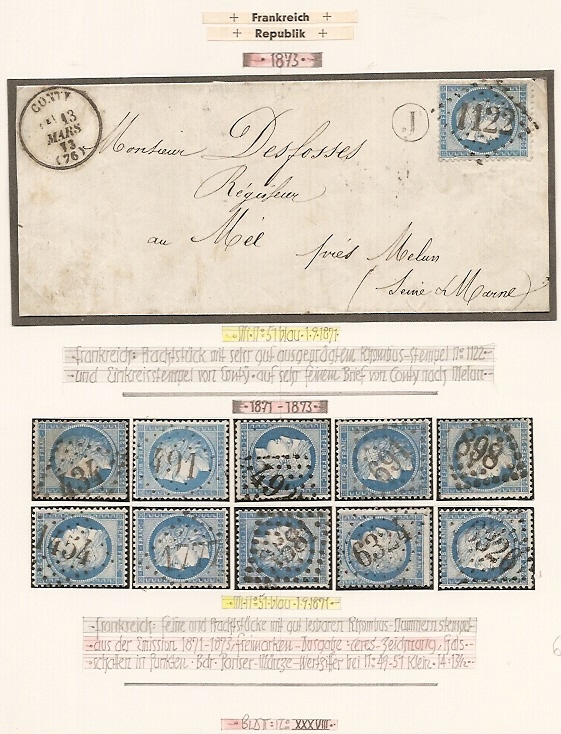 + Frankreich +
+ Republik +
·1873·
CONTY
13
MARS
73
(76)
J
1122
Monsieur Desfosses
Régisseur
au Mée près Melun
(Seine & Marne)
·Mi·N°·51·blau·1·9·1871·
·Frankreich· Prachtstück mit sehr gut ausgeprägtem Rhombus-Stempel N° 1122·
·und Einkreisstempel von Conty·auf sehr feinem Brief von Conty nach Melun·
·1871-1873·
491
698
898
1454
6324
·Mi·N°·51·blau·1·9·1871·
·Frankreich· Feine und Prachtstücke mit gut lesbaren Rhombus-Nummernstempel
aus der Emission 1871-1873 Freimarken-Ausgabe·Ceres-Zeichnung, Hals-
schatten in Punkten· Bdr·Pariser-Münze·Wertziffer bei N° 49-51 klein·14:13½·
·Bild·N°·XXXVIII·